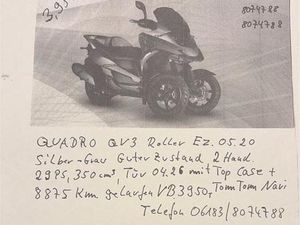 3,95
8074788
8074788
QUADRO QV3 Roller Ez. 05.20
Silber-Grau Guter Zustand 2 Hand.
29PS, 350cm³, Tüv 04.26 mit Top Case +
8875 Km gelaufen VB3950, TomTom Navi
Telefon 06183/8074788